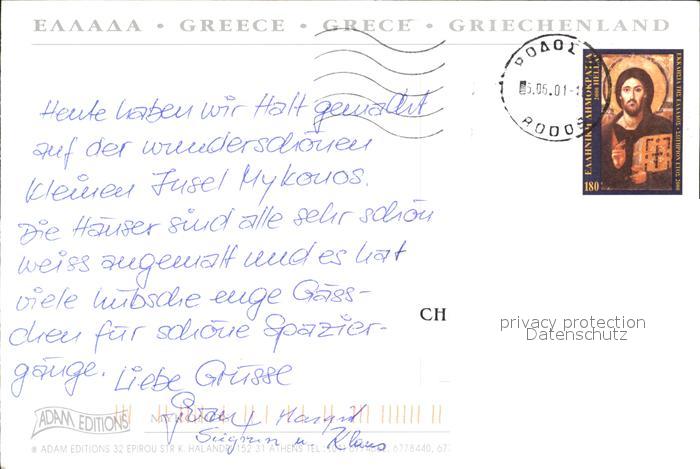 ΕΛΛΑΔΑ • GREECE • GRECE • GRIECHENLAND
ΡΟΔΟΣ
5.06.01-1
RODOS
ΕΛΛΗΝΙΚΗ ΔΗΜΟΚΡΑΤΙΑ
HELLAS
ΕΚΚΛΗΣΙΑ ΤΗΣ ΕΛΛΑΔΟΣ - ΣΩΤΗΡΙΟΝ ΕΤΟΣ 2000
180
Heute haben wir Halt gemacht
auf der wunderschönen
kleinen Insel Mykonos.
Die Häuser sind alle sehr schön
weiss angemalt und es hat
viele hübsche enge Gäss-
chen für schöne Spazier-
gänge. Liebe Grüsse
Margrit
Sigrun u. Klaus
CH
privacy protection
Datenschutz
ADAM EDITIONS
ADAM EDITIONS 32 EPIROU STR K. HALANDRI 152 31 ATHENS